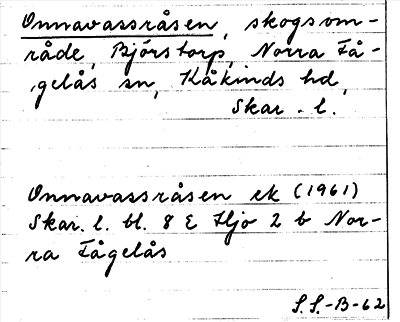 Onnavassråsen, skogsom-
råde, Bjórstorp, Norra Få-
gelås sn, Kåkinds hd,
Skar. l.
Onnavassråsen ek (1961)
Skar. l. bl. 8 E Hjo 2 b Nor-
ra Fågelås
S.S.-B-62